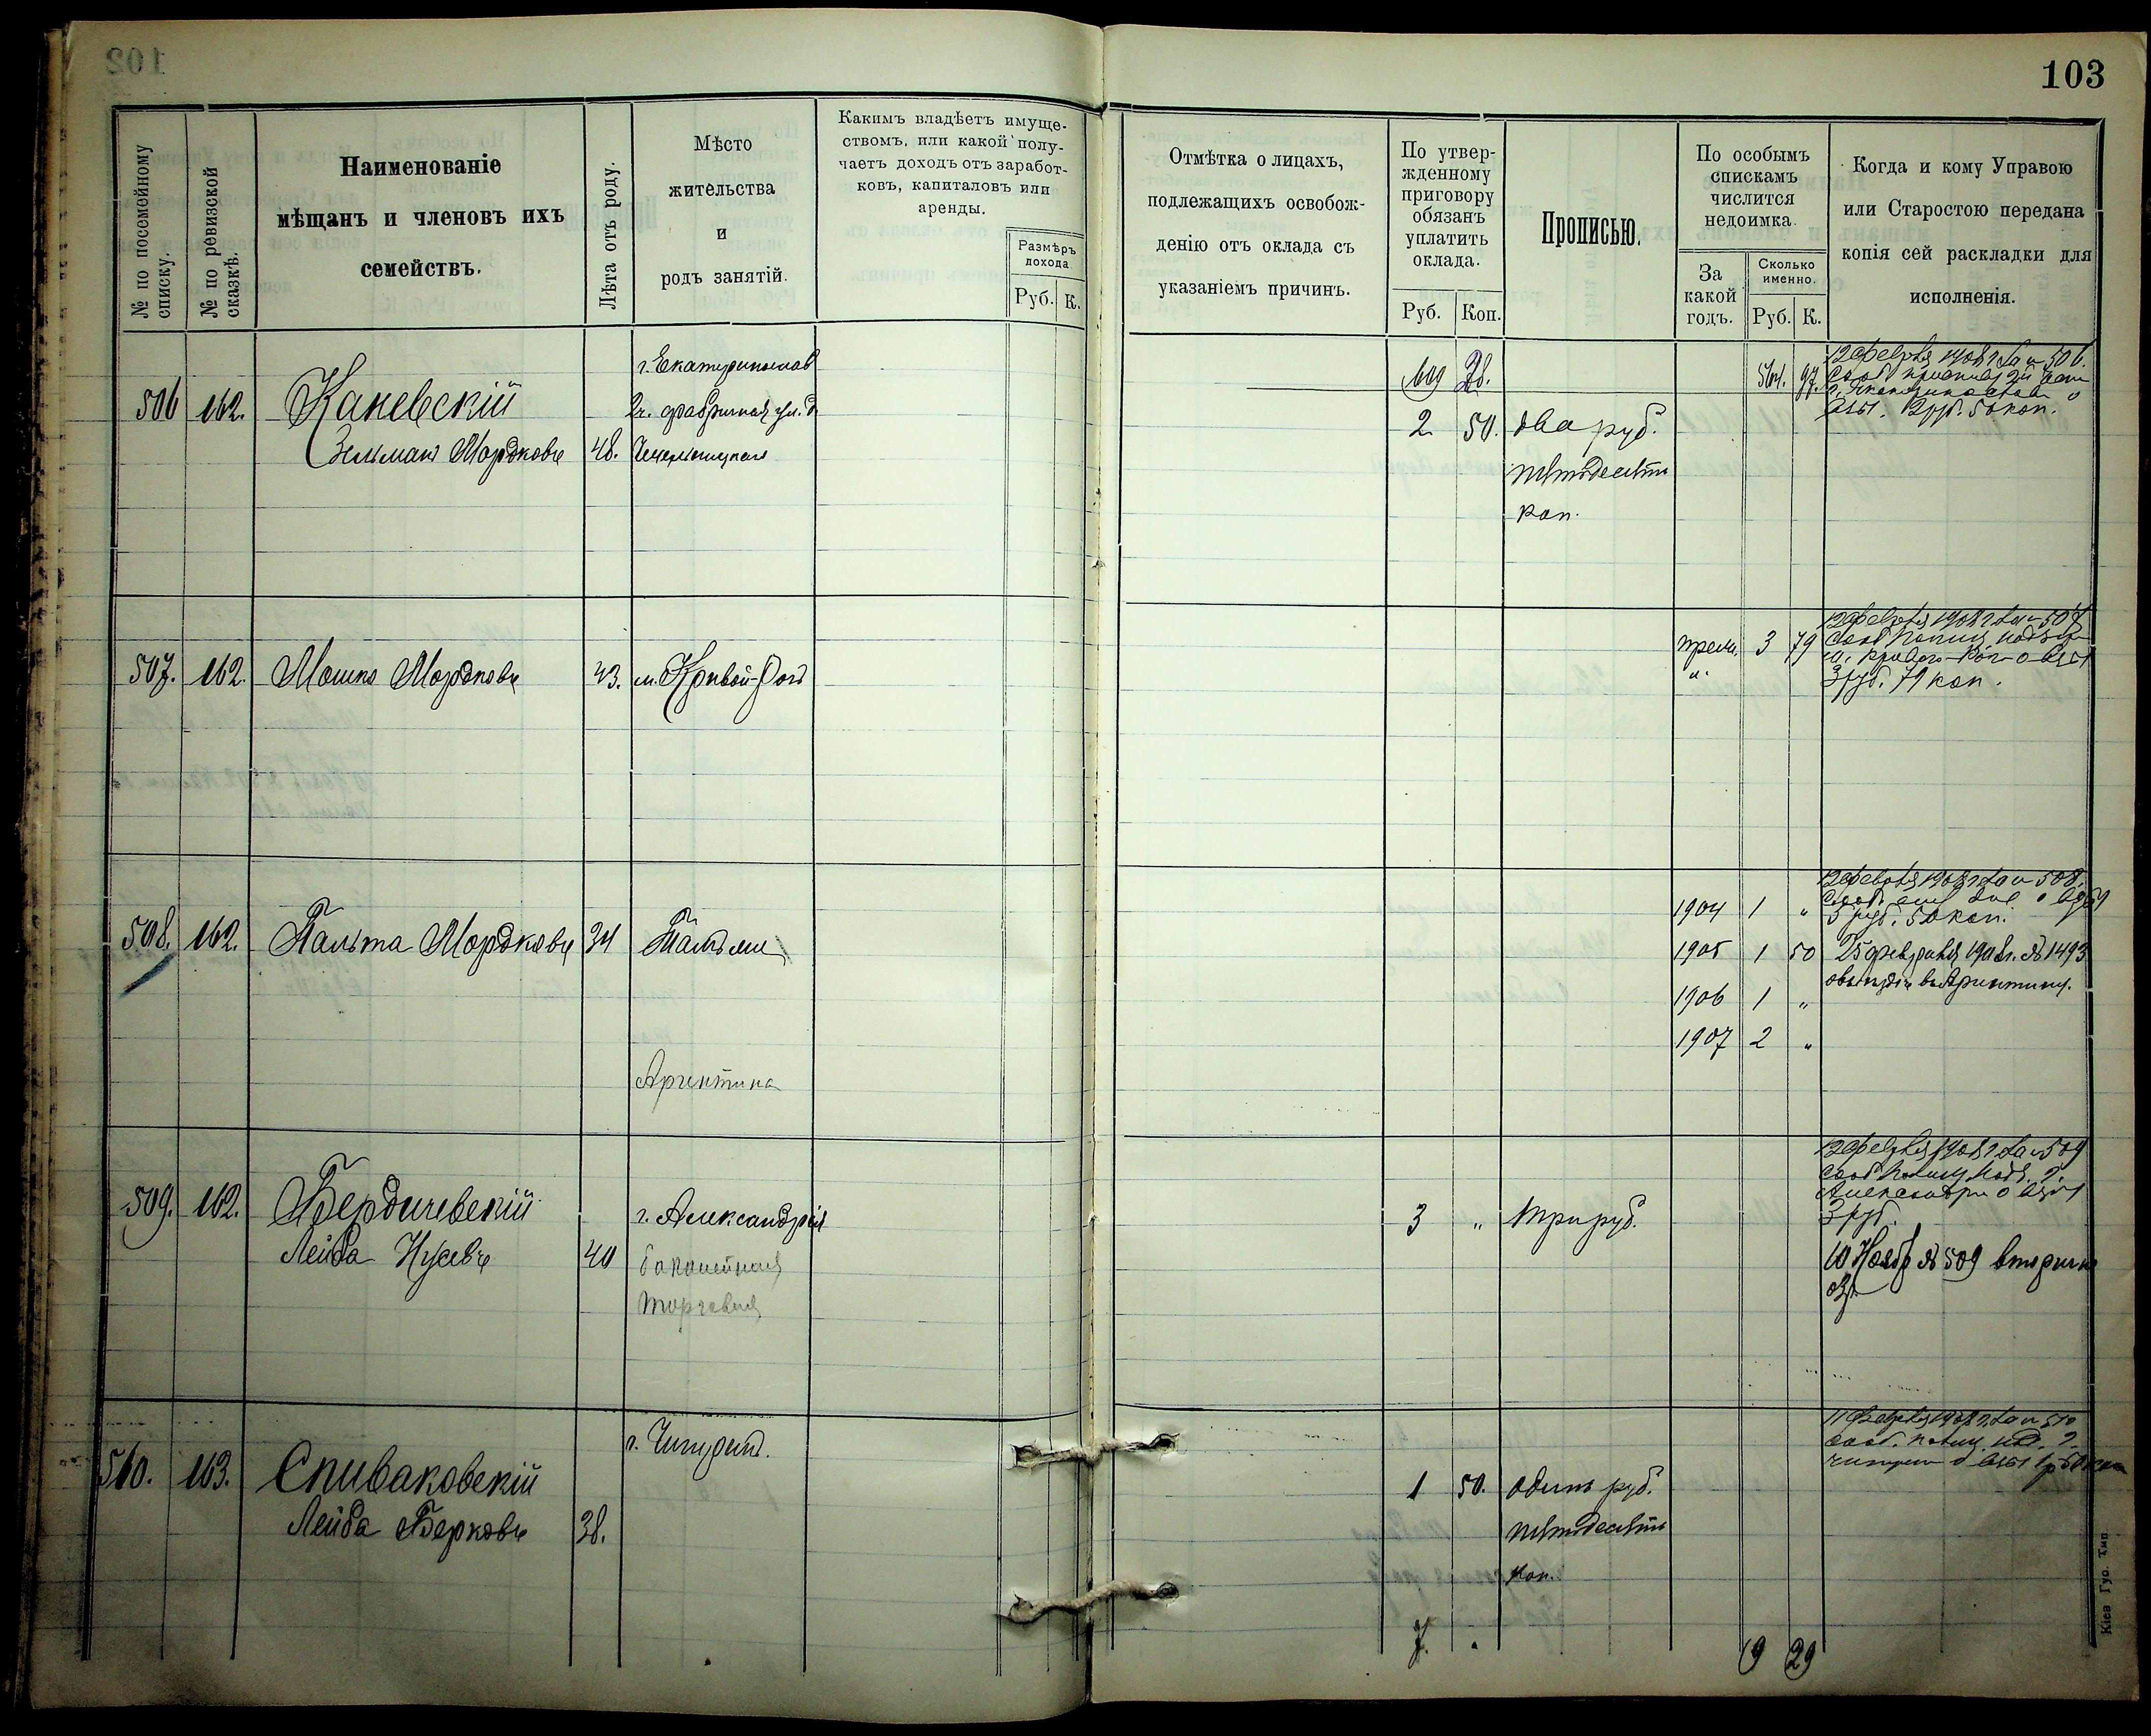 103
№ по посемейному списку.
№ по ревизской сказкѣ.
Наименованіе
мѣщанъ и членовъ ихъ
семействъ.
Лѣта отъ роду.
Мѣсто
жительства
и
родъ занятій.
Какимъ владѣетъ имуще-
ствомъ, или какой полу-
чаетъ доходъ отъ заработ-
ковъ, капиталовъ или
аренды.
Размѣръ
дохода
Руб. К.
Отмѣтка о лицахъ,
подлежащихъ освобож-
денію отъ оклада съ
указаніемъ причинъ.
По утвер-
жденному
приговору
обязанъ
уплатить
оклада.
Руб. Коп.
Прописью.
По особымъ
спискамъ
числится
недоимка.
За
какой
годъ.
Сколько
именно.
Руб. К.
Когда и кому Управою
или Старостою передана
копія сей раскладки для
исполненія.
506 162. Каневскій
Зельманъ Мордковъ 48.
г. Екатеринослав
2ч. фабричная ул. д.
2 50. два руб.
пятьдесятъ
коп.
97.
12 февр 1908 г. за № 506.
2 руб. 50 коп.
507. 162. Мошко Мордковъ 43. м. Кривой-Рогъ
3 79
12 февр 1908 г. за № 507
3 руб. 79 коп.
508. 162. Пальта Мордковъ 34 Тальми
Аргентина
1904 1 "
1905 1 50
1906 1 "
1907 2 "
12 февр 1908 г. за № 508.
5 руб. 50 коп.
25 февраля 1908 г. № 1493
въ Аргентину.
509. 162. Бердичевскій
Лейба Нусевъ 40
г. Александрія
бакалейная
торговля
3 " три руб.
12 февр 1908 г. за № 509
3 руб.
10 Нояб № 509 вторично
510. 163. Спиваковскій
Лейба Берковъ 38.
г. Чигиринъ.
1 50. одинъ руб.
пятьдесятъ
коп.
11 февр 1908 г. за № 510
7. "
9 29
Кіев Губ. Тип
102